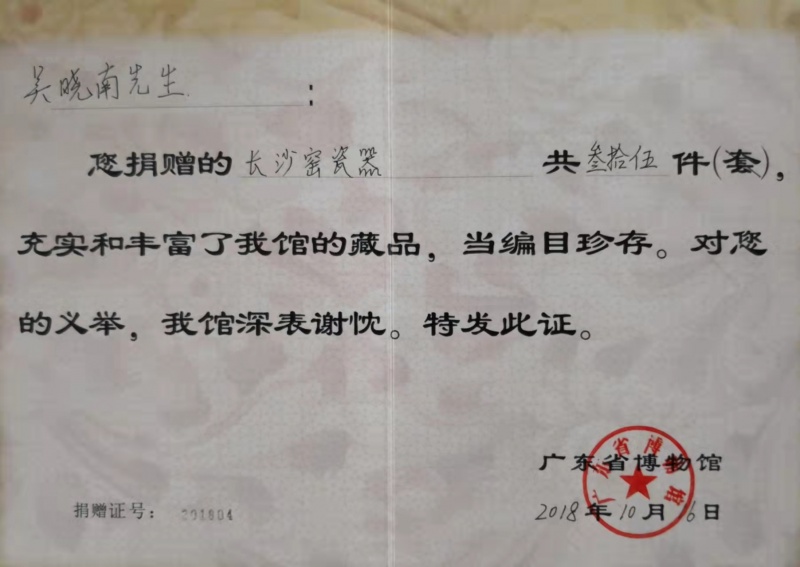 吴晓南先生：
您捐赠的 长沙窑瓷器 共 叁拾伍 件(套)，
充实和丰富了我馆的藏品，当编目珍存。对您
的义举，我馆深表谢忱。特发此证。
广东省博物馆
广东省博物馆
捐赠证号： 201804
2018年10月16日